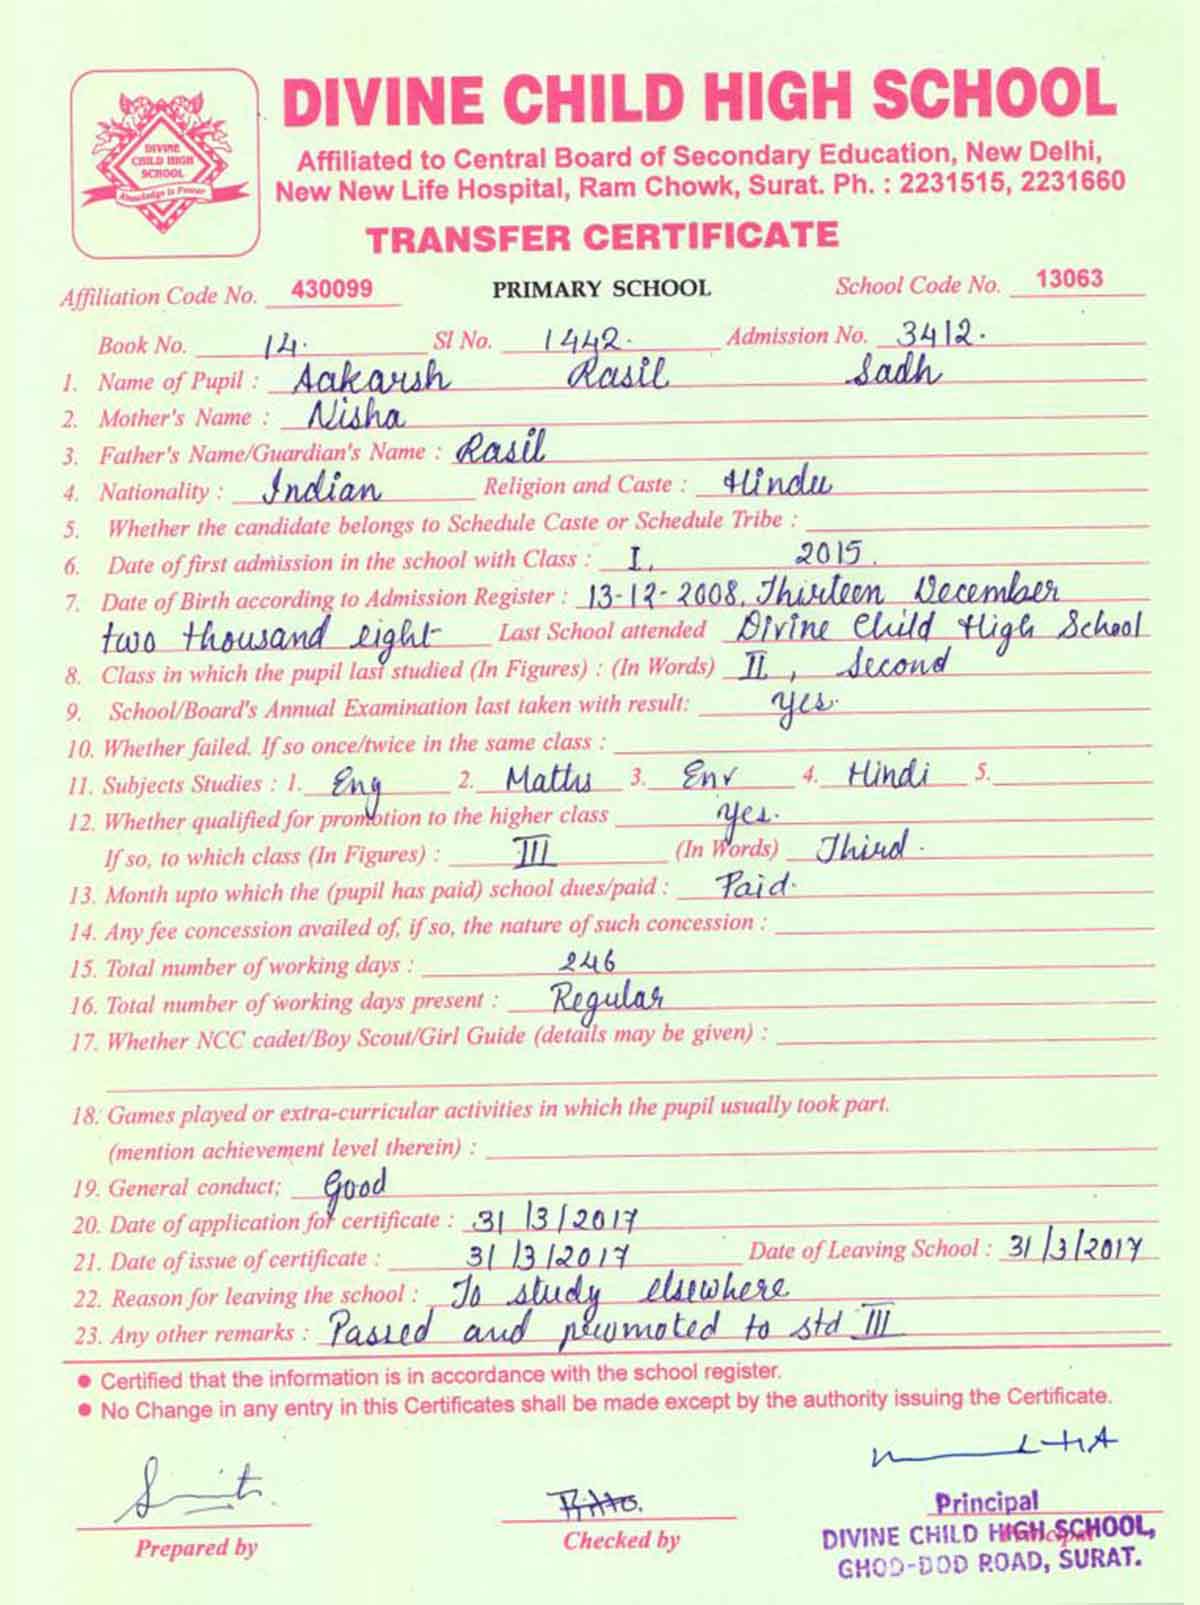 DIVINE CHILD HIGH SCHOOL
Knowledge is Power
DIVINE CHILD HIGH SCHOOL
Affiliated to Central Board of Secondary Education, New Delhi,
New New Life Hospital, Ram Chowk, Surat. Ph. : 2231515, 2231660
TRANSFER CERTIFICATE
Affiliation Code No. 430099 PRIMARY SCHOOL School Code No. 13063
Book No. 14. Sl No. 1442. Admission No. 3412.
1. Name of Pupil : Aakarsh Rasil Sadh
2. Mother's Name : Nisha
3. Father's Name/Guardian's Name : Rasil
4. Nationality : Indian Religion and Caste : Hindu
5. Whether the candidate belongs to Schedule Caste or Schedule Tribe :
6. Date of first admission in the school with Class : I, 2015.
7. Date of Birth according to Admission Register : 13-12-2008, Thirteen December
two thousand eight Last School attended Divine Child High School
8. Class in which the pupil last studied (In Figures) : (In Words) II, Second
9. School/Board's Annual Examination last taken with result: yes.
10. Whether failed. If so once/twice in the same class :
11. Subjects Studies : 1. Eng 2. Maths 3. Env 4. Hindi 5.
12. Whether qualified for promotion to the higher class yes.
If so, to which class (In Figures) : III (In Words) Third.
13. Month upto which the (pupil has paid) school dues/paid : Paid.
14. Any fee concession availed of, if so, the nature of such concession :
15. Total number of working days : 246
16. Total number of working days present : Regular
17. Whether NCC cadet/Boy Scout/Girl Guide (details may be given) :
18. Games played or extra-curricular activities in which the pupil usually took part.
(mention achievement level therein) :
19. General conduct; Good
20. Date of application for certificate : 31/3/2017
21. Date of issue of certificate : 31/3/2017 Date of Leaving School : 31/3/2017
22. Reason for leaving the school : To study elsewhere
23. Any other remarks : Passed and prwmoted to std III
● Certified that the information is in accordance with the school register.
● No Change in any entry in this Certificates shall be made except by the authority issuing the Certificate.
Prepared by Checked by Principal
DIVINE CHILD HIGH SCHOOL,
GHOD-DOD ROAD, SURAT.